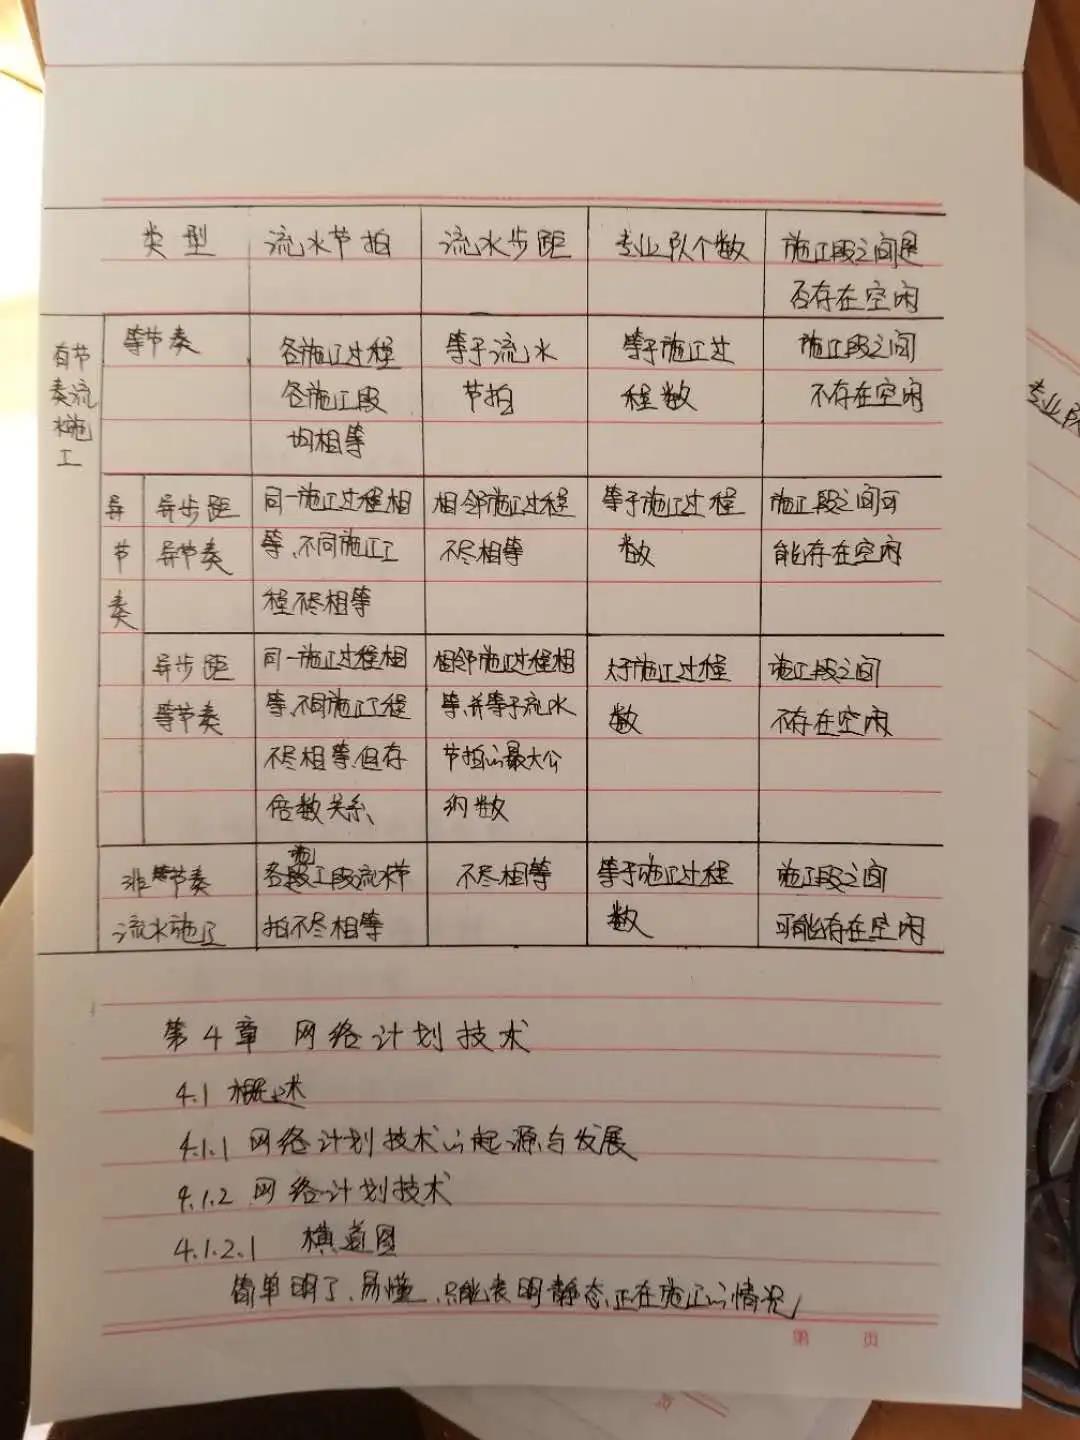 类型 流水节拍 流水步距 专业队个数 施工段之间是
否存在空闲
有节
奏流
水施
工
等节奏 各施工过程 等于流水 等于施工过 施工段之间
各施工段 节拍 程数 不存在空闲
均相等
异 异步距 同一施工过程相 相邻施工过程 等于施工过程 施工段之间可
节 异节奏 等、不同施工工 不尽相等 数 能存在空闲
奏 程不尽相等
异步距 同一施工过程相 相邻施工过程相 大于施工过程 施工段之间
等节奏 等、不同施工工程 等、并等于流水 数 不存在空闲
不尽相等、但存 节拍的最大公
倍数关系 约数
非节奏 各施工段流水节 不尽相等 等于施工过程 施工段之间
流水施工 拍不尽相等 数 可能存在空闲
第4章 网络计划技术
4.1 概述
4.1.1 网络计划技术的起源与发展
4.1.2 网络计划技术
4.1.2.1 横道图
简单明了、易懂、只能表明静态、正在施工的情况
第 页
专业队